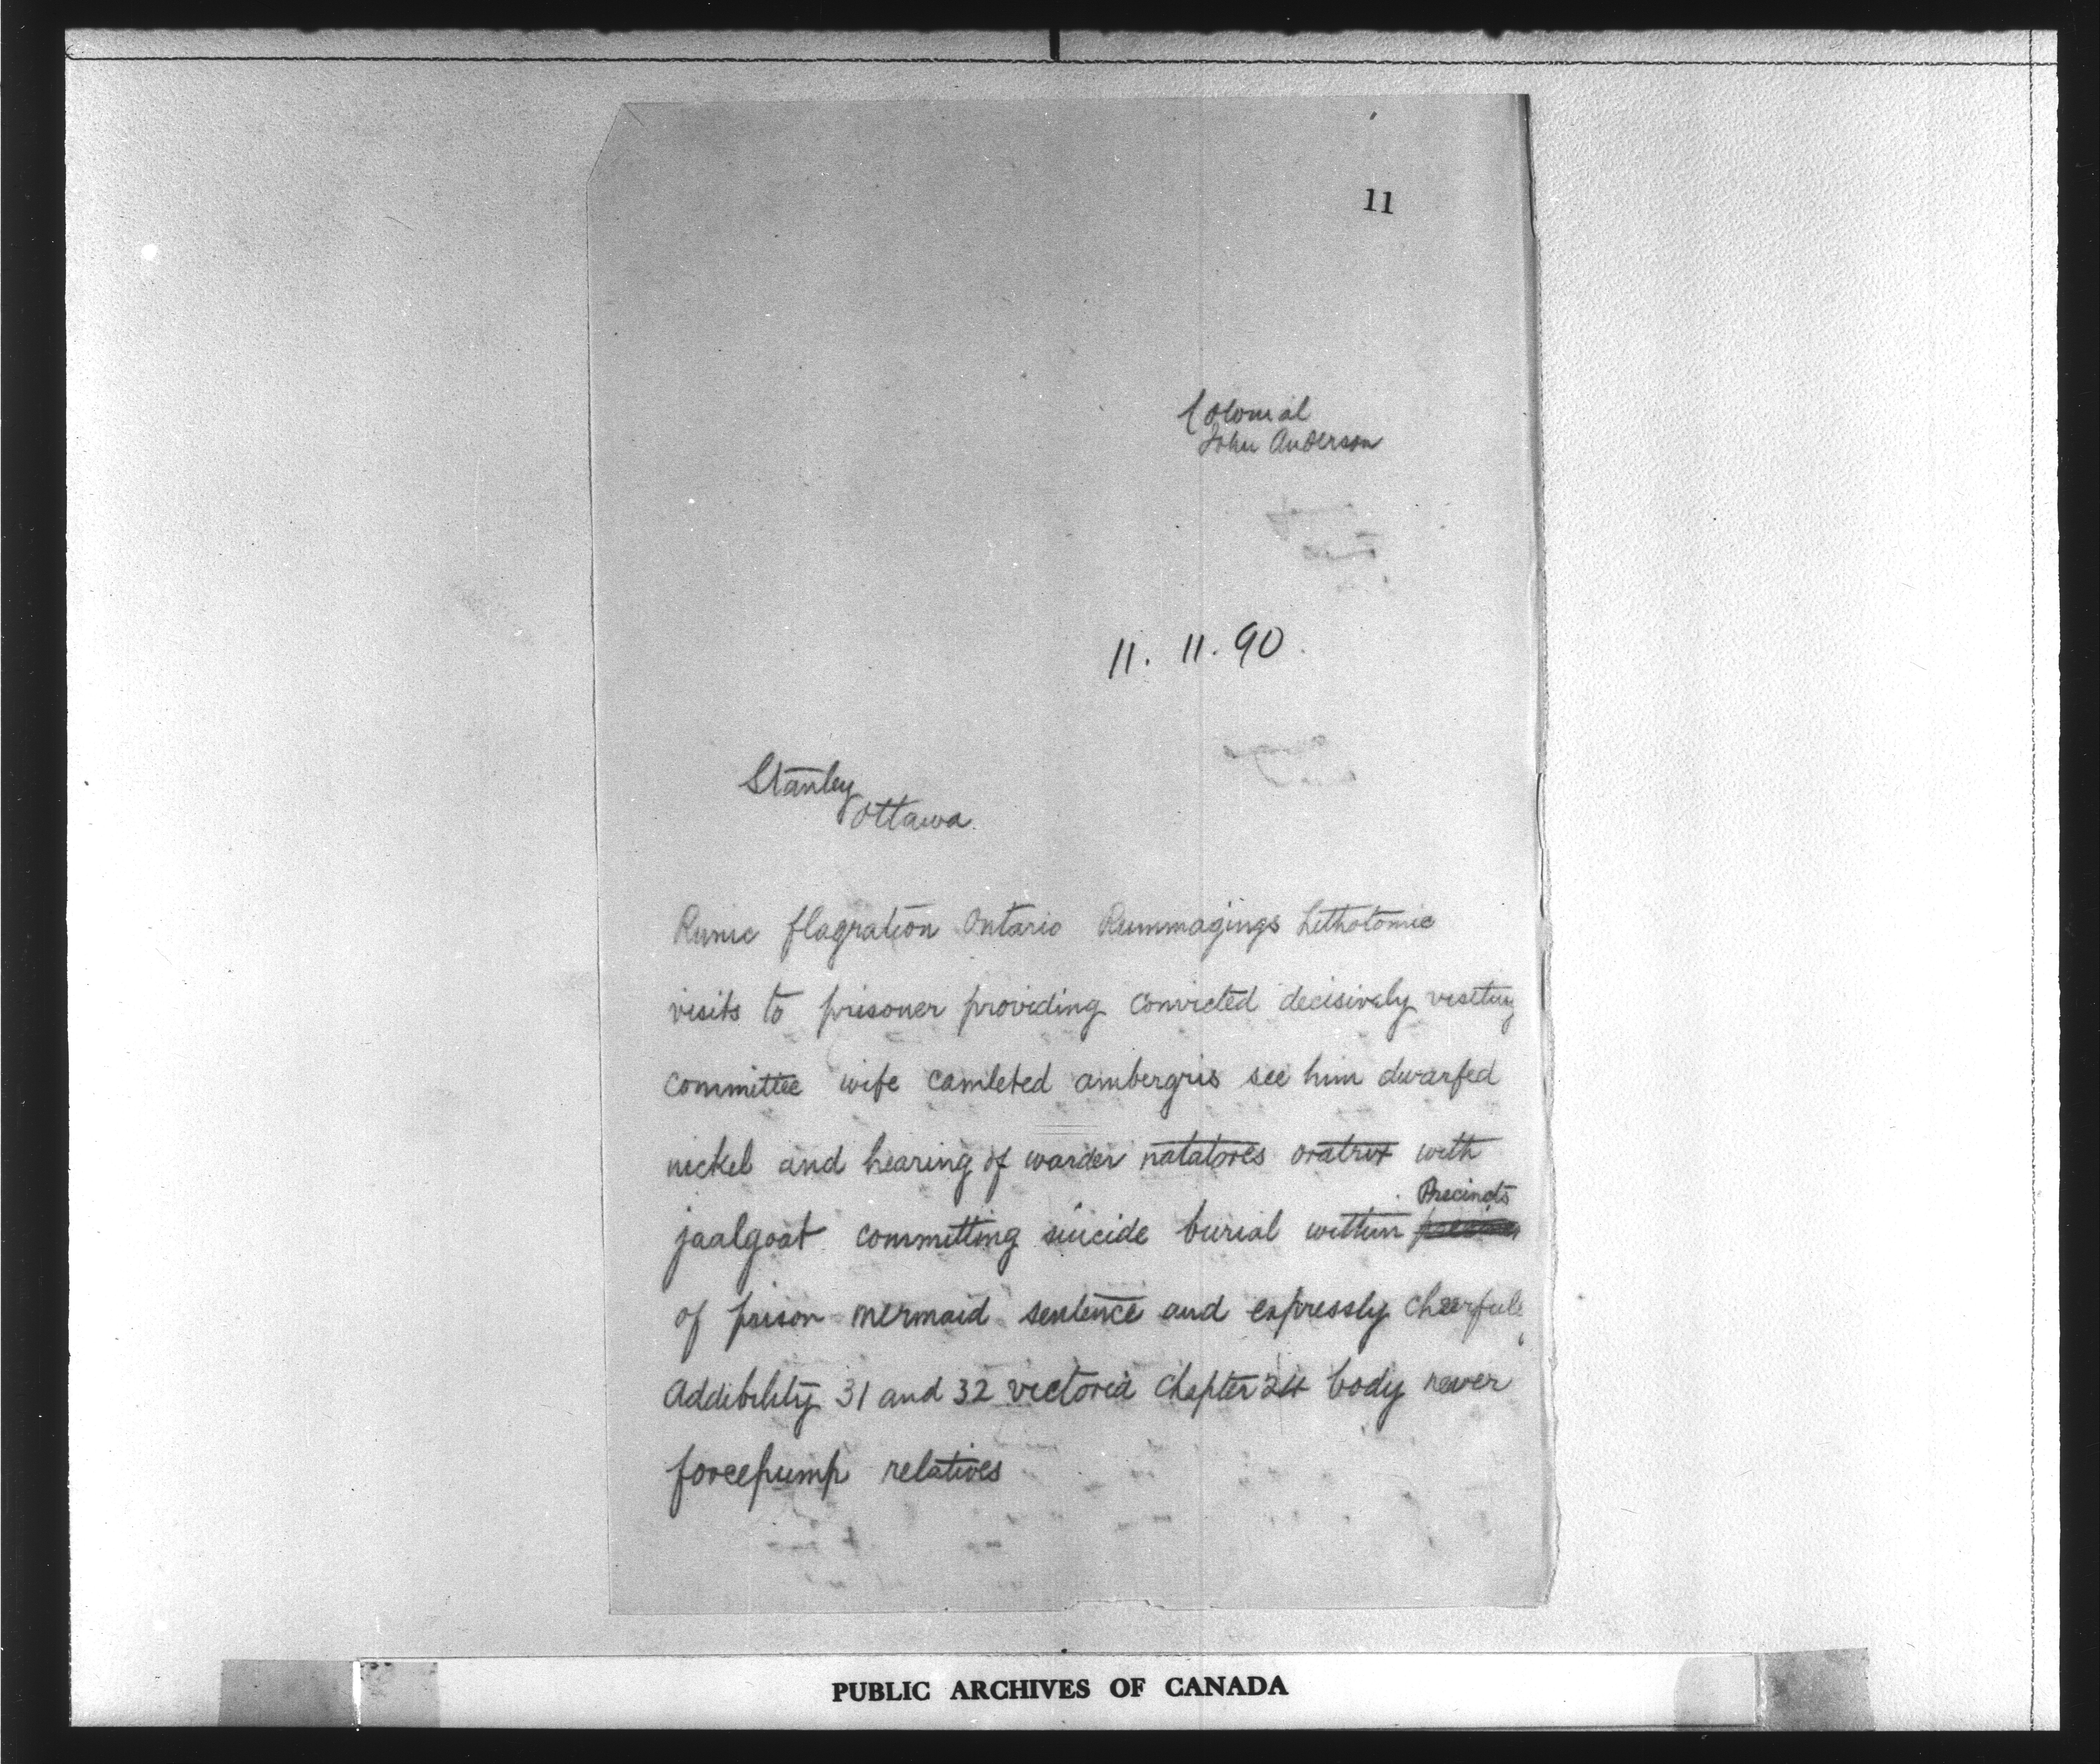 11
Colonial
John Anderson
11. 11. 90.
Stanley
Ottawa.
Runic flagration Ontario Rummagings Lithotomic
visits to prisoner providing convicted decisively visiting
committee wife camleted ambergris see him dwarfed
nickel and hearing of warder natatores oratrix with
Precincts
jaalgoat committing suicide burial within
of prison mermaid sentence and expressly cheerfule
Addibility 31 and 32 victoria chapter 24 body never
forcepump relatives
PUBLIC ARCHIVES OF CANADA